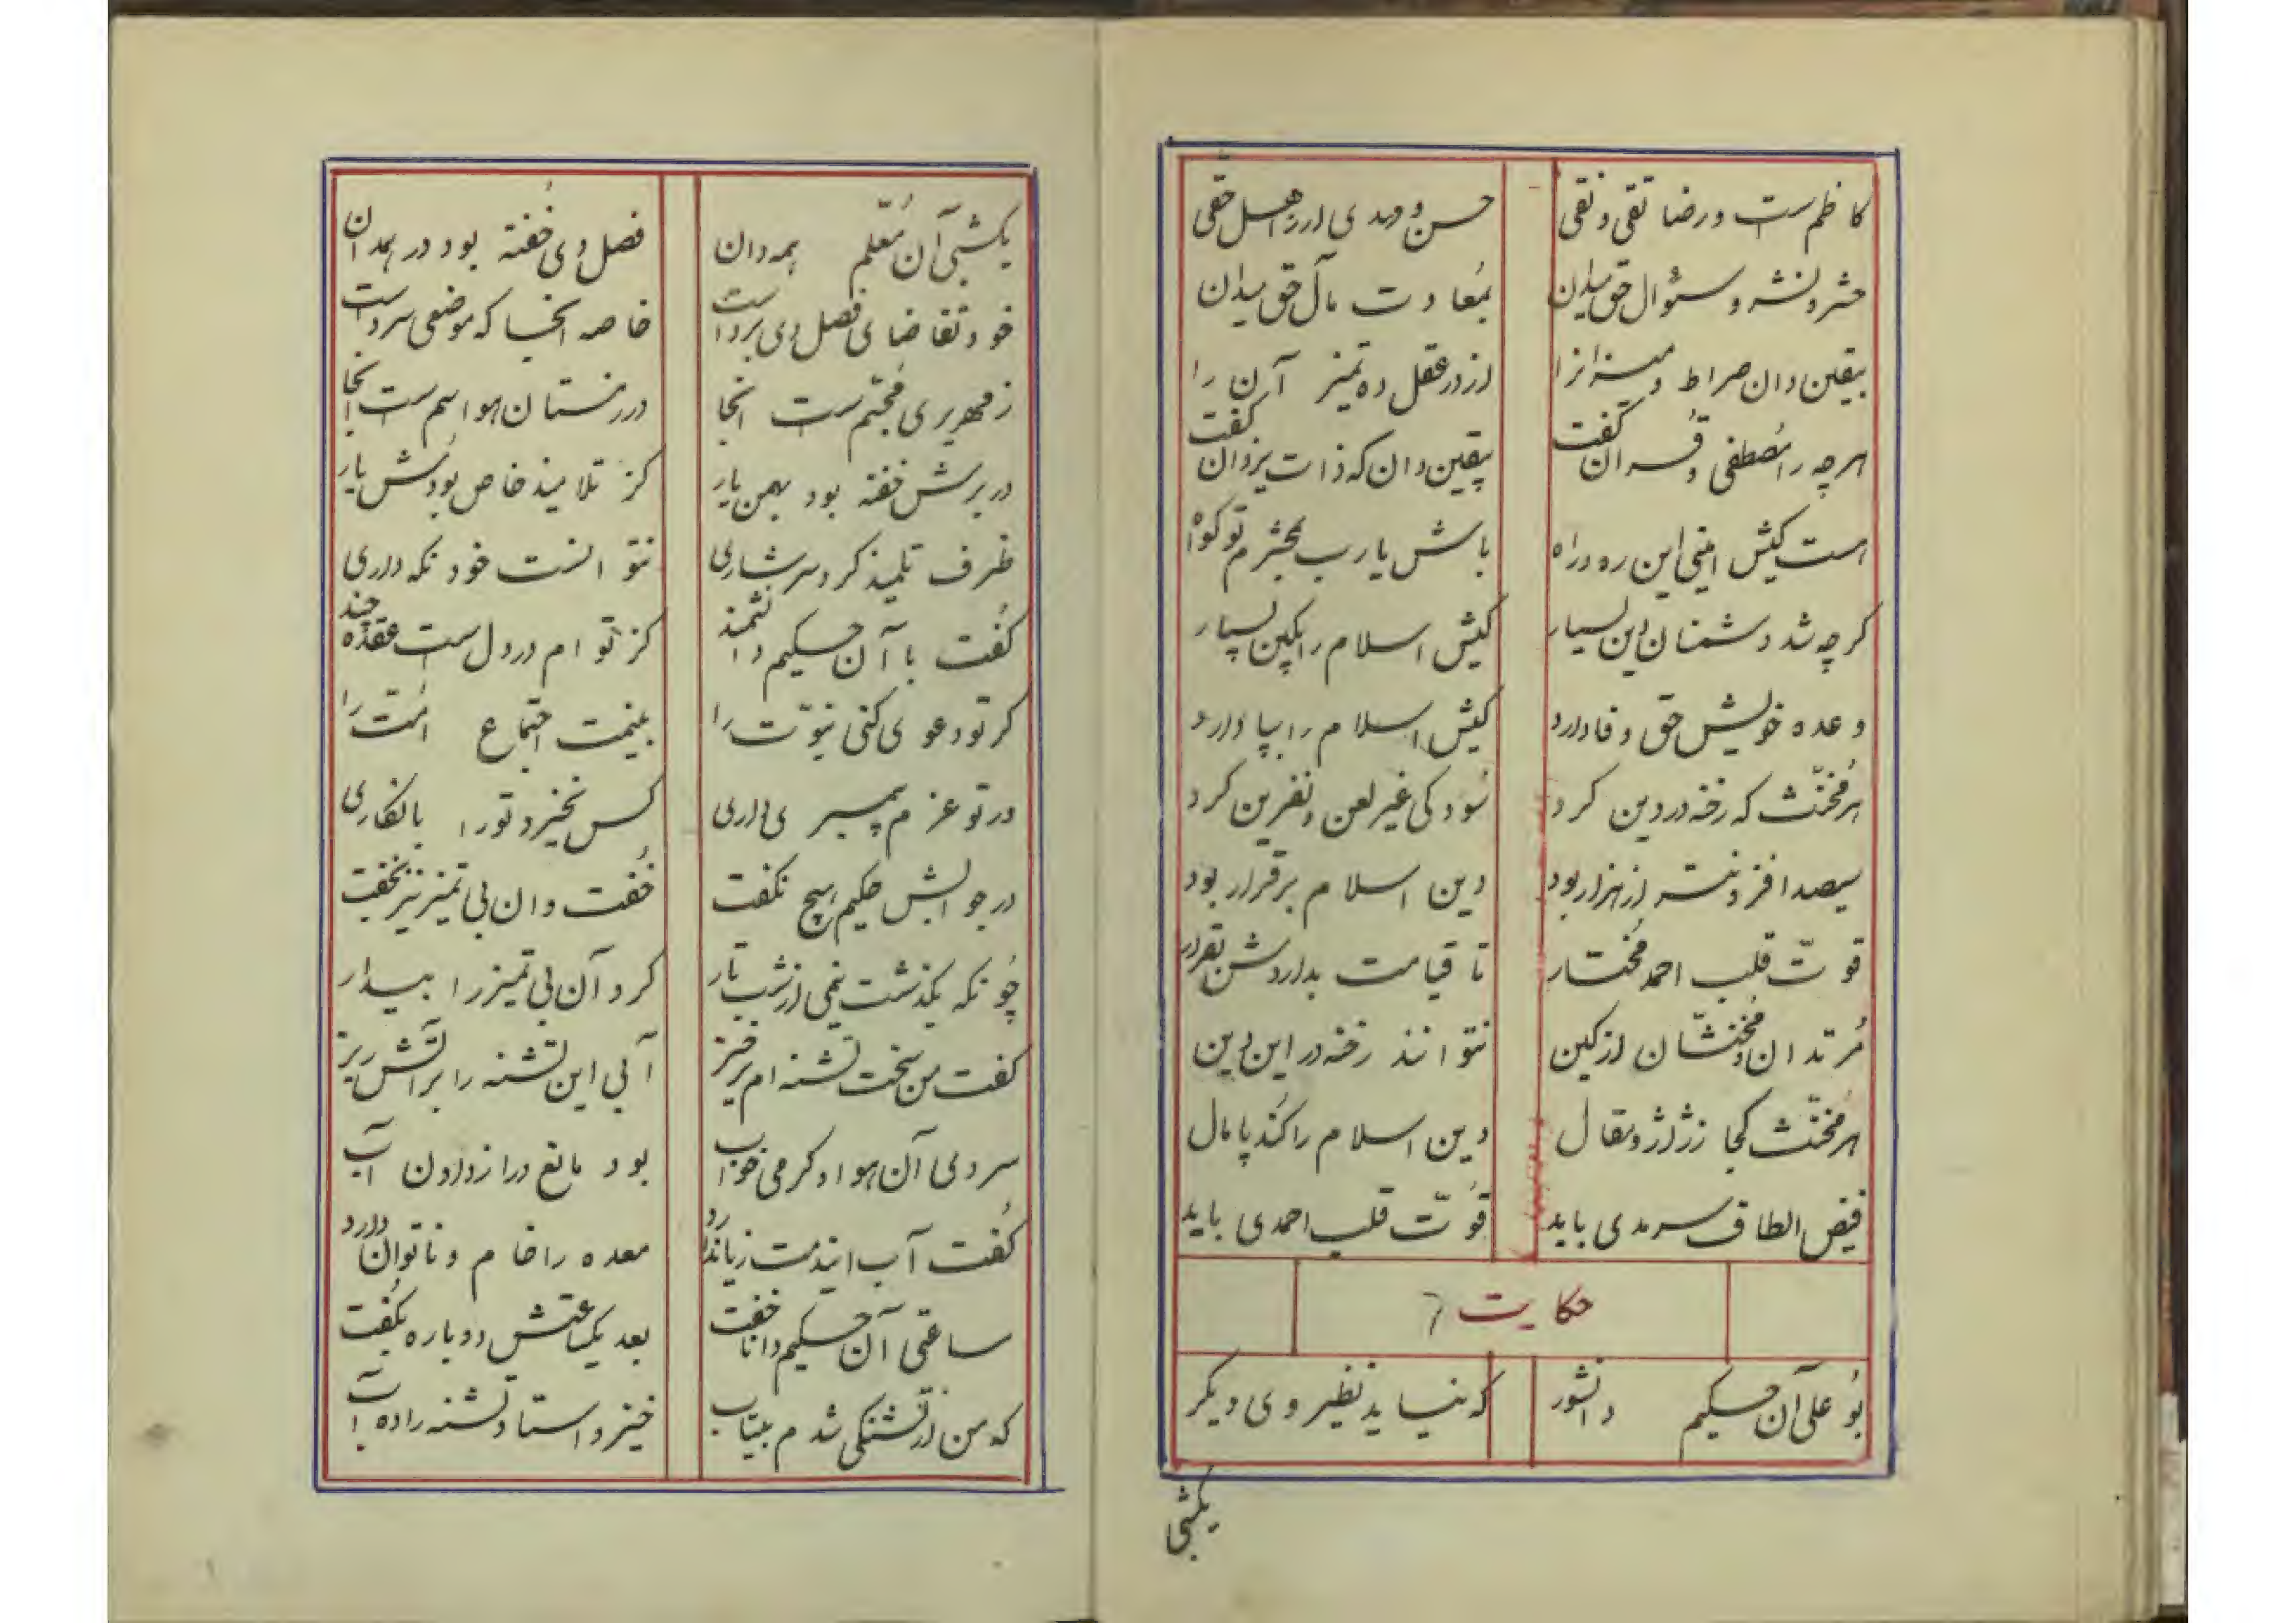 کاظم‌ست و رضا تقی و نقی حسن و مهدی از اهل حقی
حشر و نشر و سئوال حق میدان بمعادت مآل حق میدان
بیقین دان صراط و میزانرا از در عقل ده تمیز آن را
هر چه را مصطفی و قرآن گفت بیقین دان که ذات یزدان گفت
است کیش امینی این ره و راه باش یا رب بحشرم تو گواه
گر چه شد دشمنان دین بسیار کیش اسلام را بکین بسپار
وعده خویش حق وفا دارد کیش اسلام را بپا دارد
هر مخنّث که رخنه در دین کرد سود کی غیر لعن و نفرین کرد
سیصد افزونتر از هزار بود دین اسلام برقرار بود
قوّت قلب احمد مختار تا قیامت بداردش بقرار
مُرتدان و مخنّثان از کین نتوانند رخنه در این دین
هر مخنّث کجا ز ژاژ و مقال دین اسلام را کند پامال
فیض الطاف سرمدی باید قوّت قلب احمدی باید
حکایت ۶
بو علی آن حکیم دانشور که نیاید نظیر وی دیگر
یکشبی
یکشبی آن معلم همه دان فصل دی خفته بود در همدان
خود تقاضای فصل دی برد است خاصه آنجا که موضعی سرد است
زمهریری مجسّم ست آنجا در زمستان هوا سم ست آنجا
در برش خفته بود بهمن یار کز تلامیذ خاص بودش یار
ظرف تلمیذ کرد سرشاری نتوانست خود نگه داری
گفت با آن حکیم دانشمند کز تو ام در دل ست عقده چند
گر تو دعوی کنی نبوّت را بینمت اجتماع امّت را
ور تو عزم پیمبری داری کس نخیزد تو را بانکاری
در جوابش حکیم هیچ نگفت خفت و ان بی تمیز نیز بخفت
چونکه بگذشت نیمی از شب تار کرد آن بی تمیز را بیدار
گفت من سخت تشنه ام برخیز آبی این تشنه را بر آتش ریز
سردی آن هوا و گرمی خواب بود مانع ورا ز دادن آب
گفت آب ایندمت زیان دارد معده را خام و ناتوان دارد
ساعتی آن حکیم دانا خفت بعد یکساعتش دوباره بگفت
که من از تشنگی شدم بیتاب خیز و استاد تشنه را ده آب